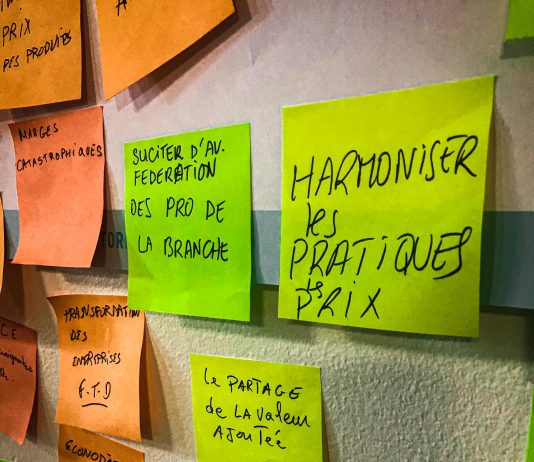 PRIX
DES PRODUITS
MARGES
CATASTROPHIQUES
SUCITER D'AV.
FEDERATION
DES PRO DE
LA BRANCHE
HARMONISER
les
PRATIQUES
PRIX
TRANSFORMATION
DES
ENTRIPRISES
F.T.D
le PARTAGE
de LA Valeur
AJOUTÉE